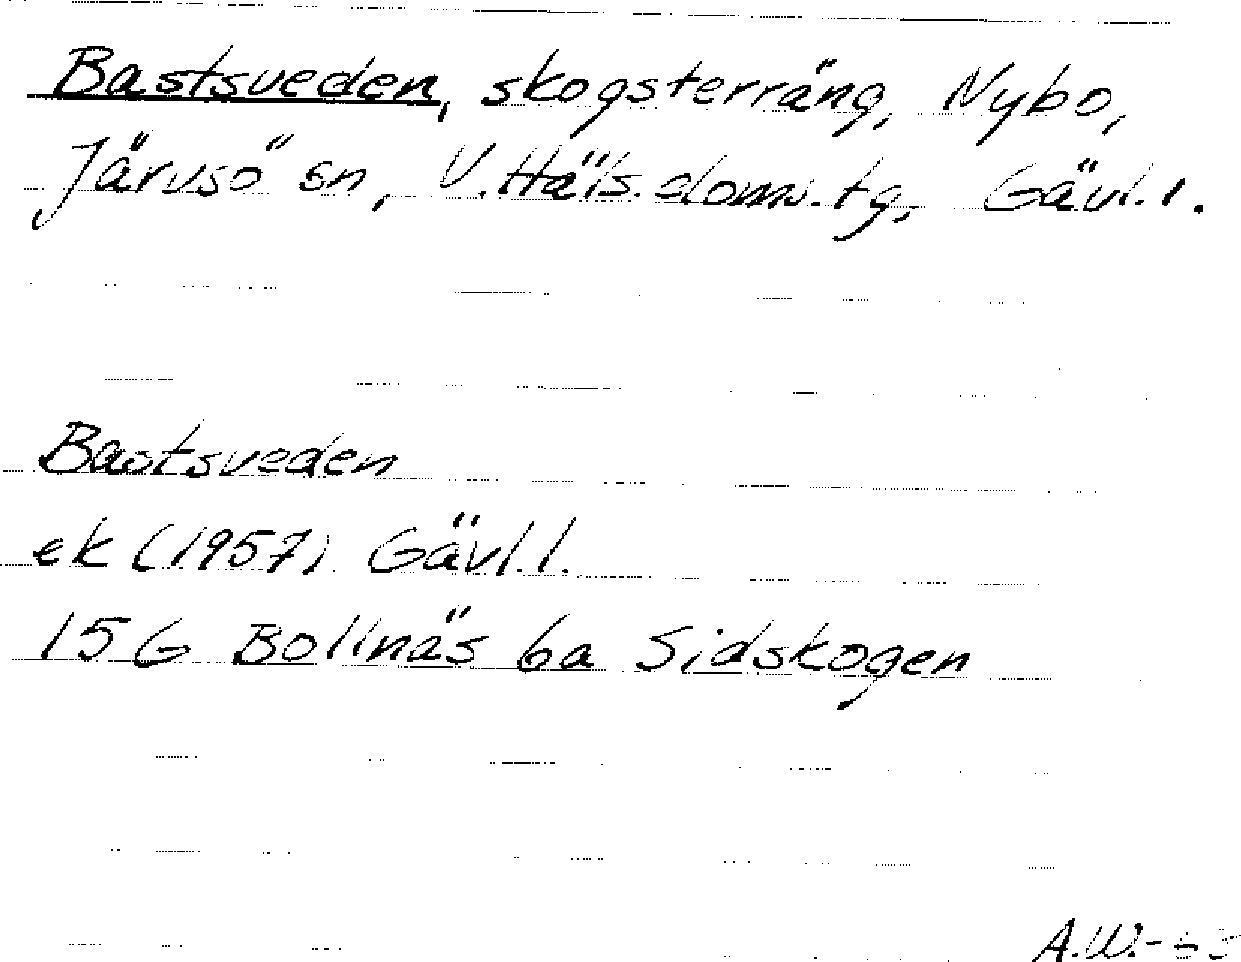 Bastsveden, skogsterräng, Nybo,
Järvsö sn, V. Häls. doms. tg, Gävl. l.
Bastsveden
ek (1957) Gävl. l.
15G Bollnäs 6a Sidskogen
A.W.-